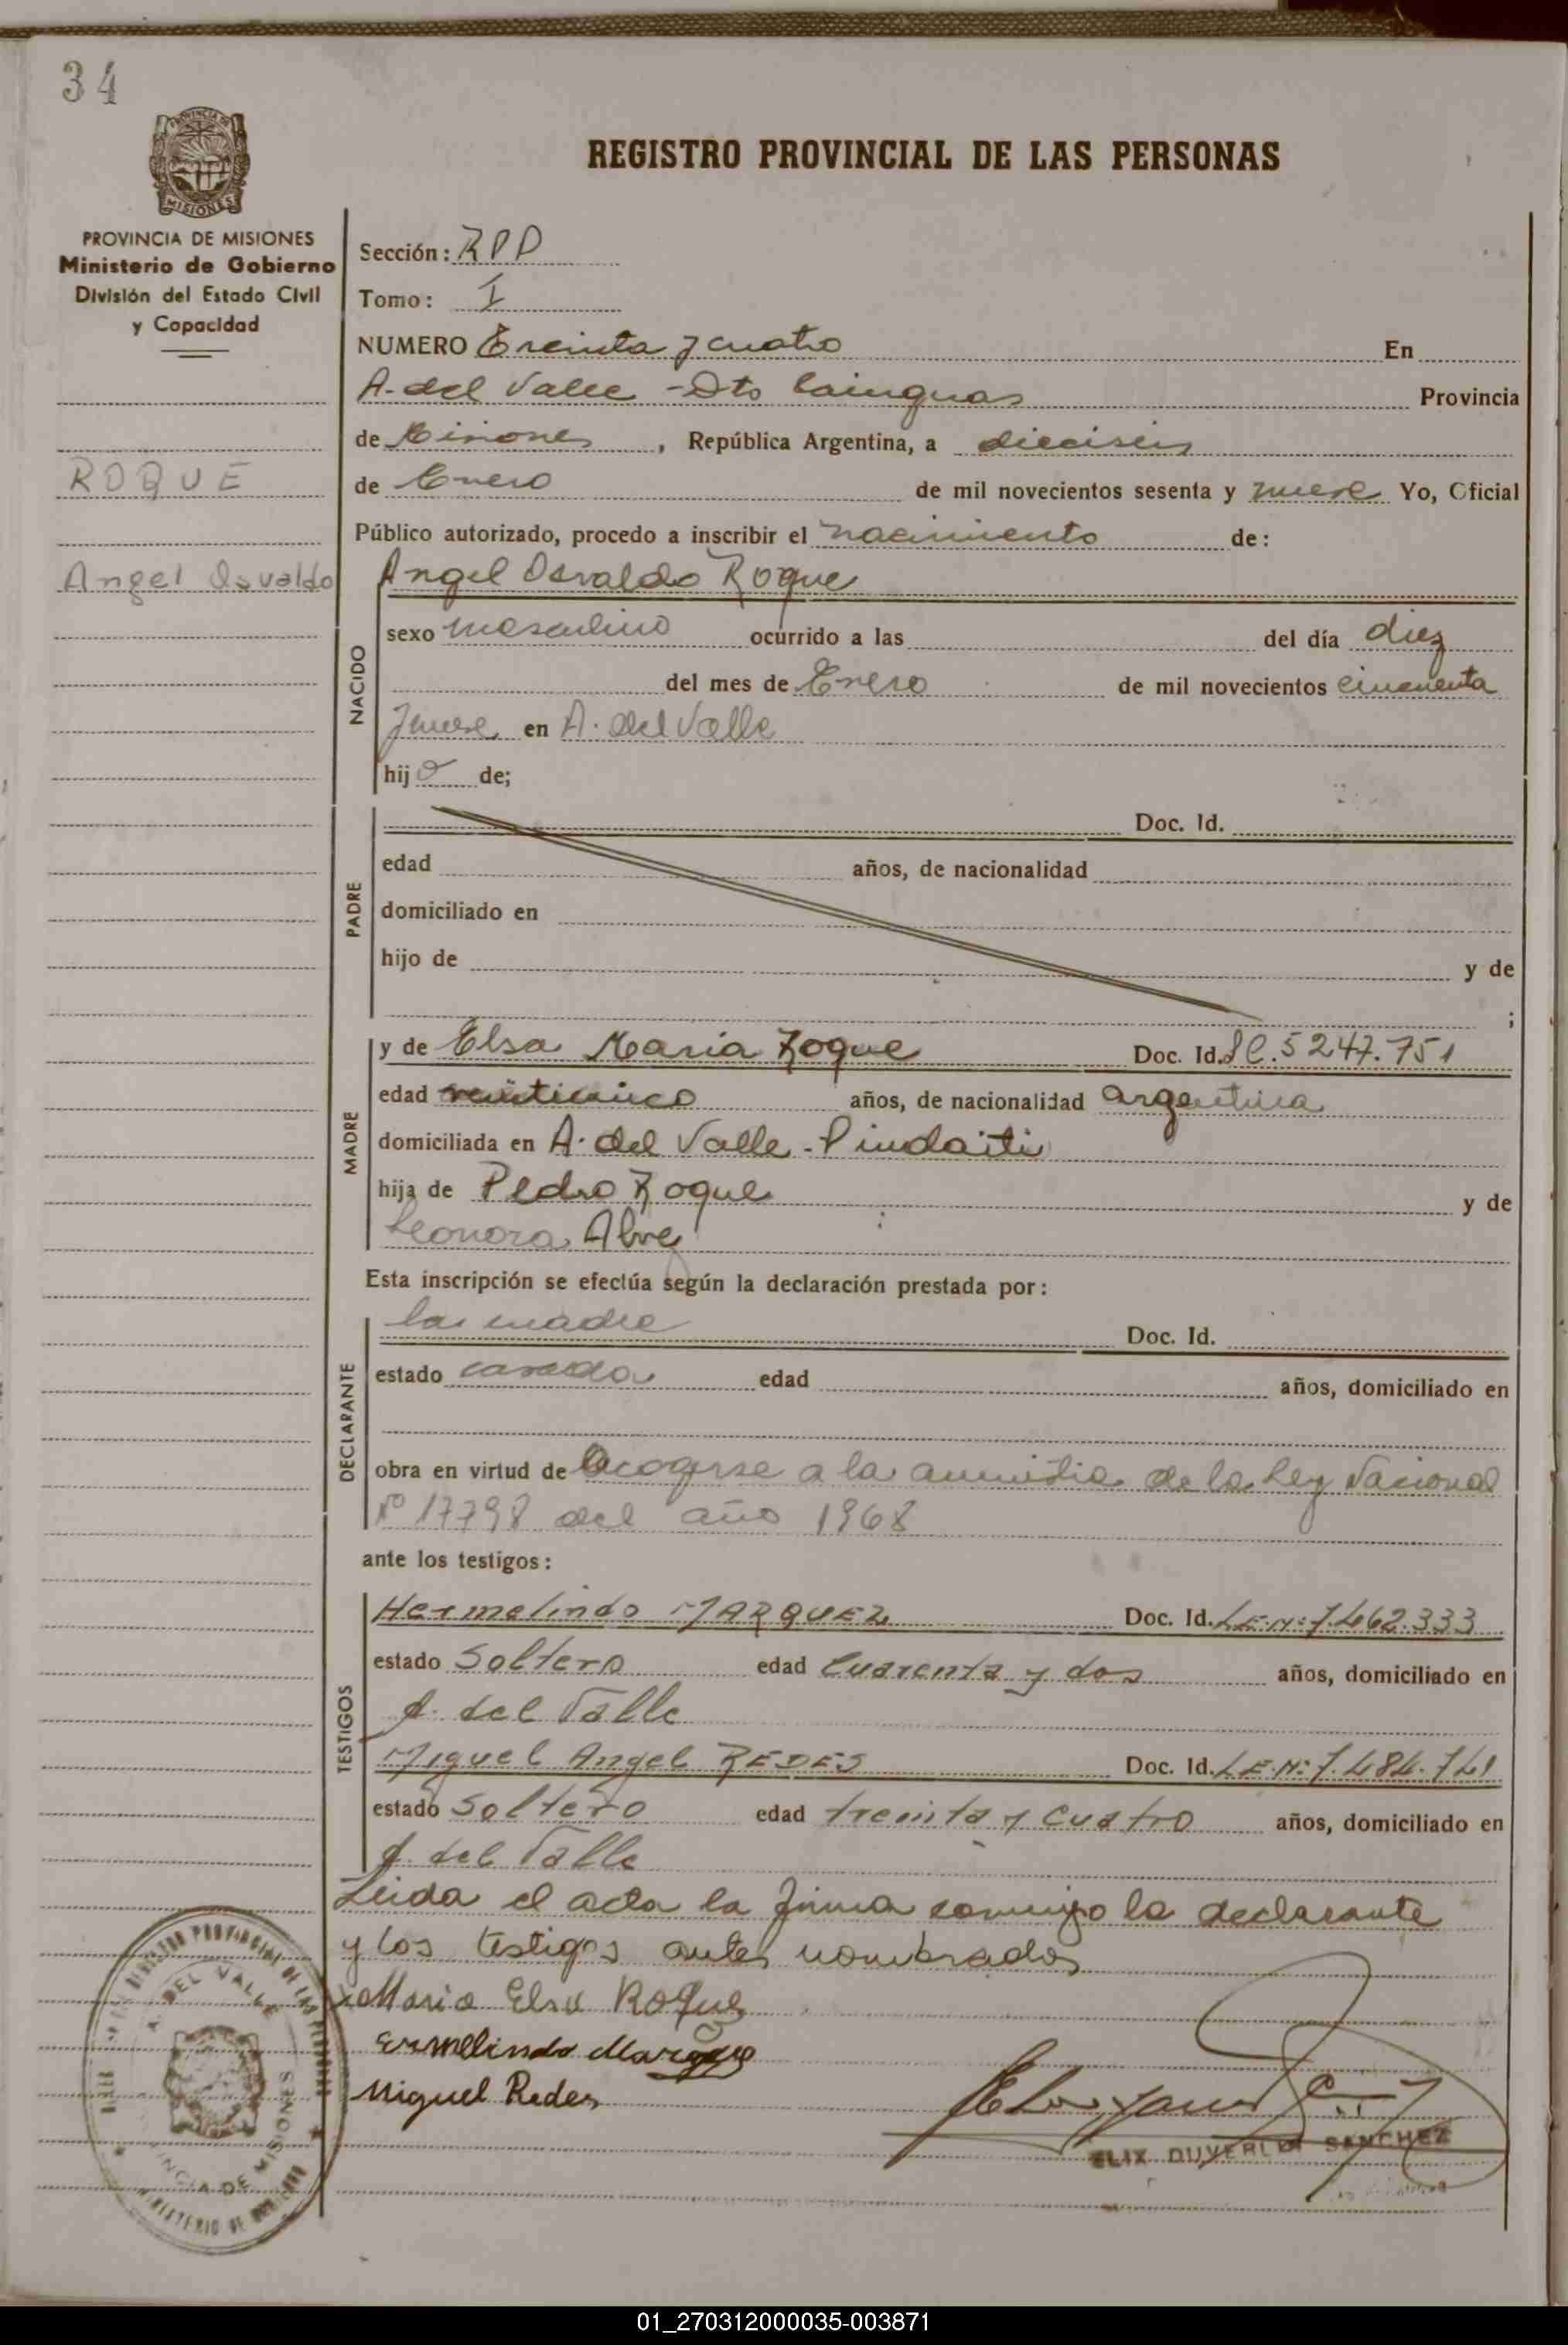 34
PROVINCIA DE MISIONES
Ministerio de Gobierno
División del Estado Civil
y Capacidad
ROQUE
Angel Osvaldo
REGISTRO PROVINCIAL DE LAS PERSONAS
Sección: RPP
Tomo: I
NUMERO Treinta y cuatro En
A. del Valle - Dto Cainguas Provincia
de Misiones, República Argentina, a dieciseis
de Enero de mil novecientos sesenta y nueve Yo, Oficial
Público autorizado, procedo a inscribir el nacimiento de:
Angel Osvaldo Roque
NACIDO
sexo masculino ocurrido a las del día diez
del mes de Enero de mil novecientos cincuenta
y nueve en A. del Valle
hijo de;
PADRE
Doc. Id.
edad años, de nacionalidad
domiciliado en
hijo de y de
;
MADRE
y de Elsa Maria Roque Doc. Id. 5247.751
edad veinticinco años, de nacionalidad argentina
domiciliada en A. del Valle - Pindaiti
hija de Pedro Roque y de
Leonora Alvez
Esta inscripción se efectúa según la declaración prestada por:
DECLARANTE
la madre Doc. Id.
estado casada edad años, domiciliado en
obra en virtud de acogerse a la amnistia de la Ley Nacional
Nº 17798 del año 1968
ante los testigos:
TESTIGOS
Hermelindo MARQUEZ Doc. Id. LE.Nº 7.462.333
estado Soltero edad Cuarenta y dos años, domiciliado en
A. del Valle
Miguel Angel REDES Doc. Id. LE.Nº 7.484.741
estado Soltero edad treinta y cuatro años, domiciliado en
A. del Valle
Leida el acta la firma conmigo la declarante
y los testigos antes nombrados
Maria Elsa Roque
Ermelindo Marquez
Miguel Redes
ELIX DUVERLI SANCHEZ
A. DEL VALLE
01_270312000035-003871